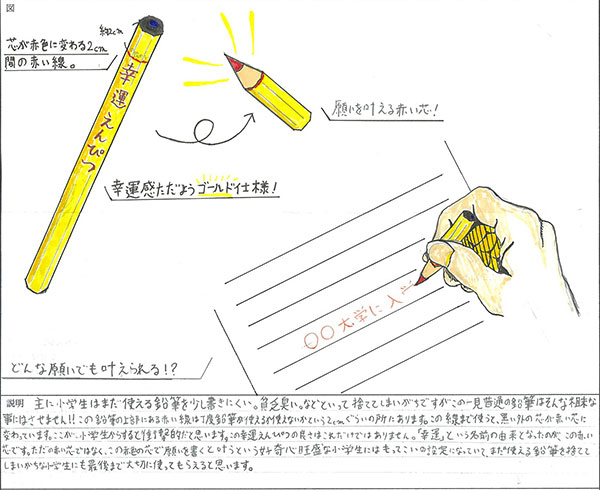 図
約2cm
芯が赤色に変わる2cm
間の赤い線。
幸運えんぴつ
願いを叶える赤い芯!
幸運感ただようゴールド仕様!
〇〇大学に入学
どんな願いでも叶えられる!?
説明 主に小学生はまだ使える鉛筆を少し書きにくい。貧乏臭い。などといって捨ててしまいがちですがこの一見普通の鉛筆はそんな粗末な
事にはさせません!!この鉛筆の上部にある赤い線は丁度鉛筆が使えるか使えないかという2cmぐらいの所にあります。この線まで使うと、黒い外の芯が赤い芯に
変わっています。これが、小学生からすると衝撃的だと思います。この幸運えんぴつの良さはこれだけではありません。「幸運」という名前の由来となったのが、この赤い
芯です。ただの赤い芯ではなく、この赤色の芯で願いを書くと叶うという好奇心旺盛な小学生にはもってこいの設定になっていて、まだ使える鉛筆を捨てて
しまいがちな小学生にも最後まで大切に使ってもらえると思います。